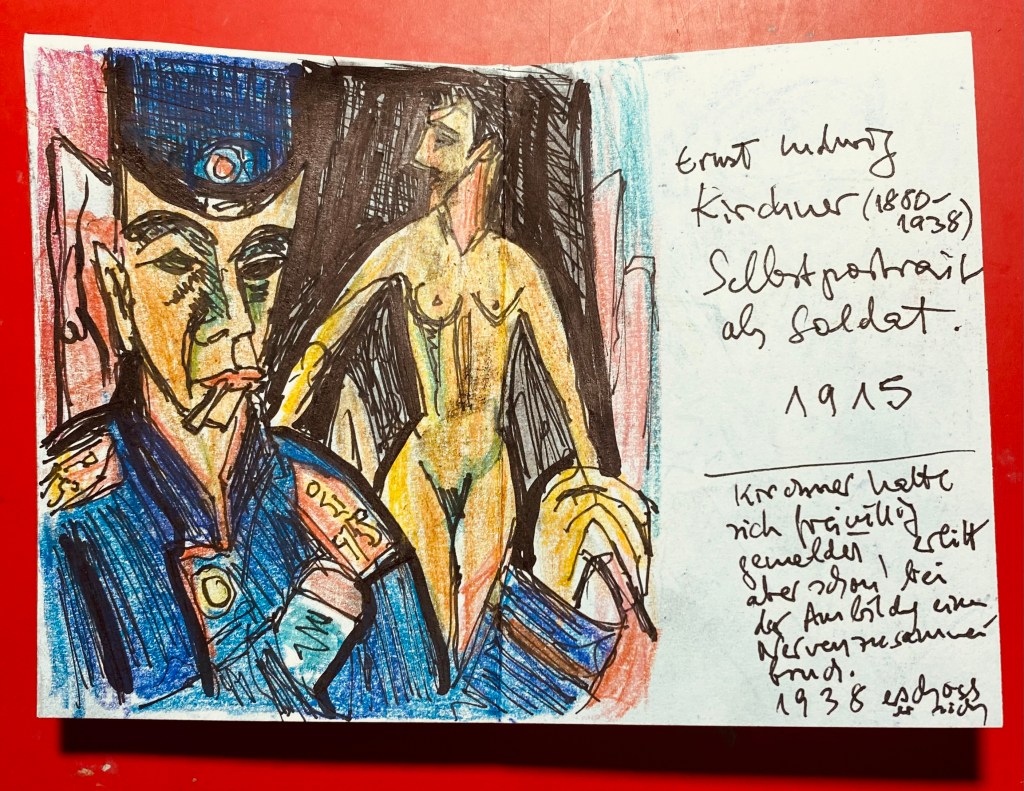 Ernst Ludwig
Kirchner (1880-
1938)
Selbstportrait
als Soldat.
1915
Kirchner hatte
sich freiwillig
gemeldet, erlitt
aber schon bei
der Ausbildg einen
Nervenzusammen
bruch.
1938 erschoss
er sich
75